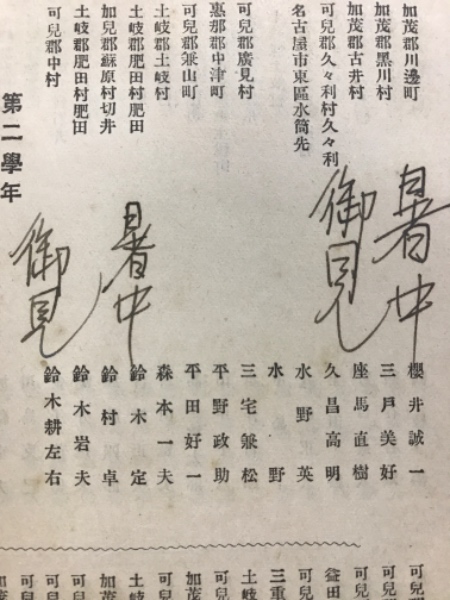 加茂郡川邊町 櫻井誠一
加茂郡黑川村 三戸美好
加茂郡古井村 座馬直樹
可兒郡久々利村久々利 久昌高明
名古屋市東區水筒先 水野英
水野
可兒郡廣見村 三宅兼松
惠那郡中津町 平野政助
可兒郡兼山町 平田好一
土岐郡土岐村 森本一夫
土岐郡肥田村肥田 鈴木定
加茂郡蘇原村切井 鈴村卓
土岐郡肥田村肥田 鈴木岩夫
可兒郡中村 鈴木耕左右
第二學年
暑中
御見
暑中
御見
可兒
益田
可兒
三重
土岐
可兒
加茂
可兒
土岐
加茂
可兒
可兒
可兒